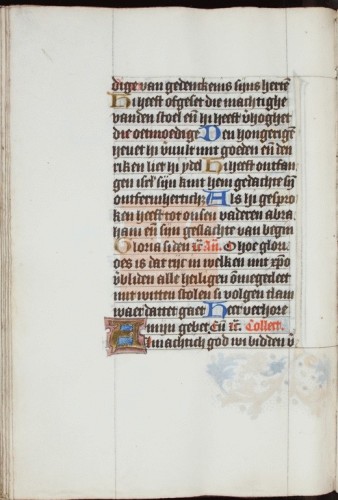 dige van gedenckenis sijns hertē
Hi heeft ofgeset die machtighe
vanden stoel eñ hi heeft v̄hoghet
die oetmoedige Den hongerigē
hevet hi v̄vult mit goeden eñ den
riken liet hi ydel Hi heeft ontfan
gen isrl̄ sijn kint hem gedachte sij
ontfermherticħ Als hi gespro
ken heeft tot onsen vaderen abra
ham eñ sijn geslachte van begin
Gloria si den rc̄ Añ. O hoe glori
oes is dat rijc in welken mit xp̄o
v̄bliden alle heiligen ōmegecleet
mit witten stolen si volgen tlam
waer dattet gaet Heer verhore
mijn gebet Eñ rc̄. Collect.
Almachtich god wi bidden v̄